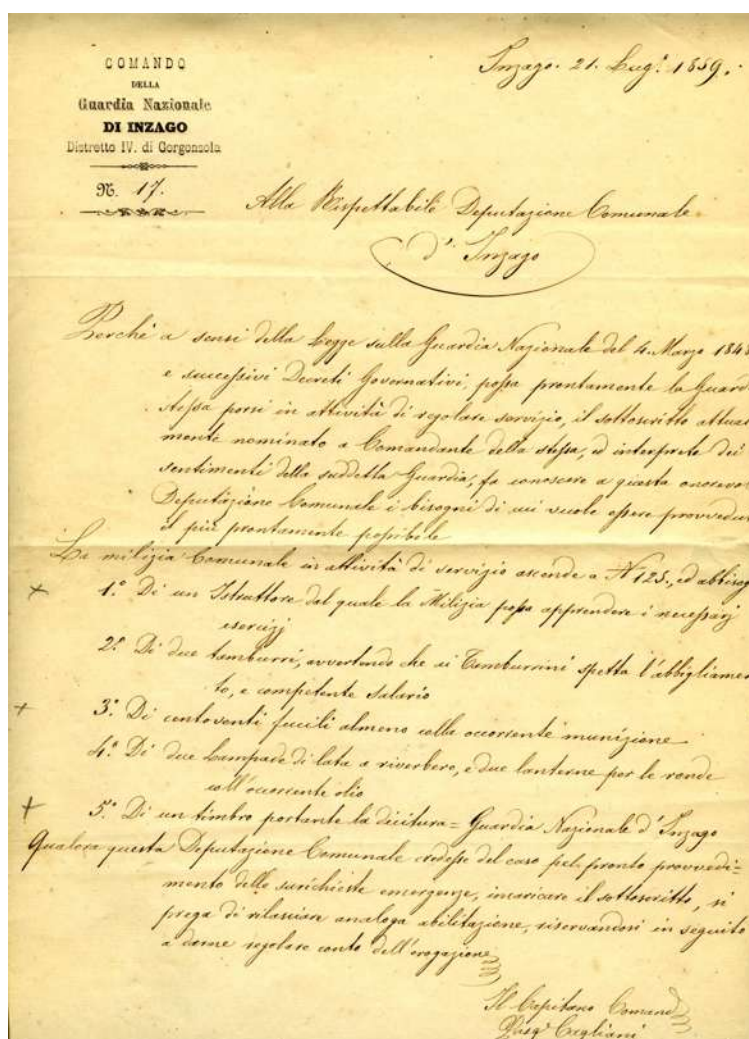 COMANDO
DELLA
Guardia Nazionale
DI INZAGO
Distretto IV. di Gorgonzola
N. 17.
Inzago. 21. Lug.° 1859.
Alla Rispettabile Deputazione Comunale
d'Inzago
Perchè a sensi della Legge sulla Guardia Nazionale del 4. Marzo 1848
e successivi Decreti Governativi, possa prontamente la Guard
stessa porsi in attività di regolare servizio, il sottoscritto attual
mente nominato a Comandante della stessa, ed interprete dei
sentimenti della suddetta Guardia, fa conoscere a questa onorevol
Deputazione Comunale i bisogni di cui vuole essere provvedu
il più prontamente possibile
La milizia Comunale in attività di servizio ascende a N 125., ed abbisog
1.° Di un Istruttore dal quale la Milizia possa apprendere i necessarj
esercizj
2.° Di due tamburri, avvertendo che ai Tamburrini spetta l'abbigliamen
to, e competente salario
3.° Di centoventi fucili almeno colla occorrente munizione
4.° Di due Lampade di lata a riverbero, e due lanterne per le ronde
coll'occorrente olio
5.° Di un timbro portante la dicitura = Guardia Nazionale d'Inzago
Qualora questa Deputazione Comunale credesse del caso pel pronto provvedi=
mento delle surichieste emergenze, incaricare il sottoscritto, si
prega di rilasciare analoga abilitazione, riservandosi in seguito
a darne regolare conto dell'erogazione
Il Capitano Comand
Pasq. Cagliani